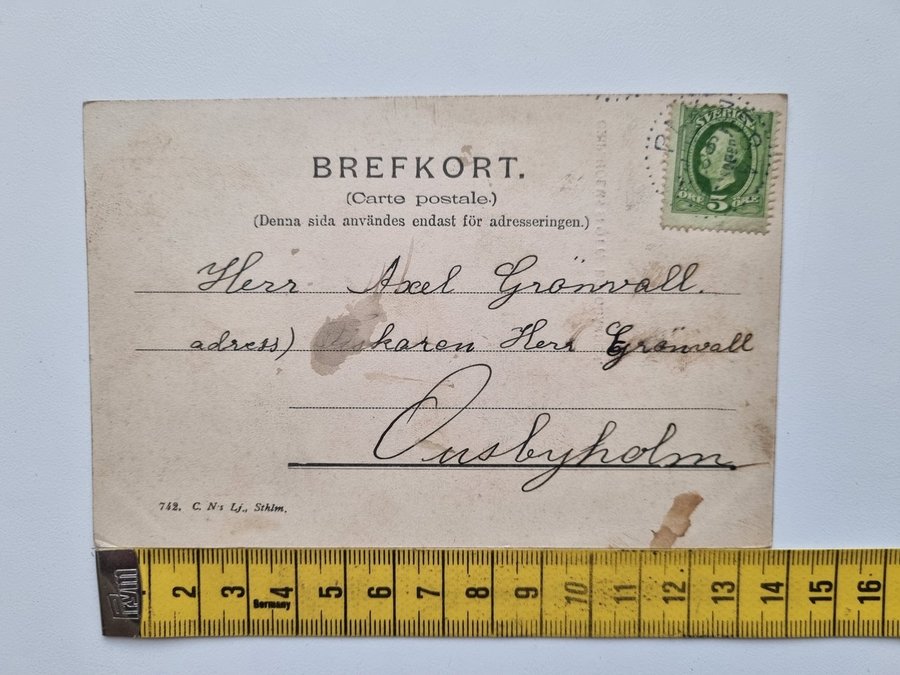 BREFKORT.
(Carte postale.)
(Denna sida användes endast för adresseringen.)
SVERIGE
ÖRE 5 ÖRE
Herr Axel Grönvall.
adress) Fiskaren Herr Grönvall
Ousbyholm
742. C. N:s Lj., Sthlm.
Prym
2 3 4 5 6 7 8 9 10 11 12 13 14 15 16
Germany